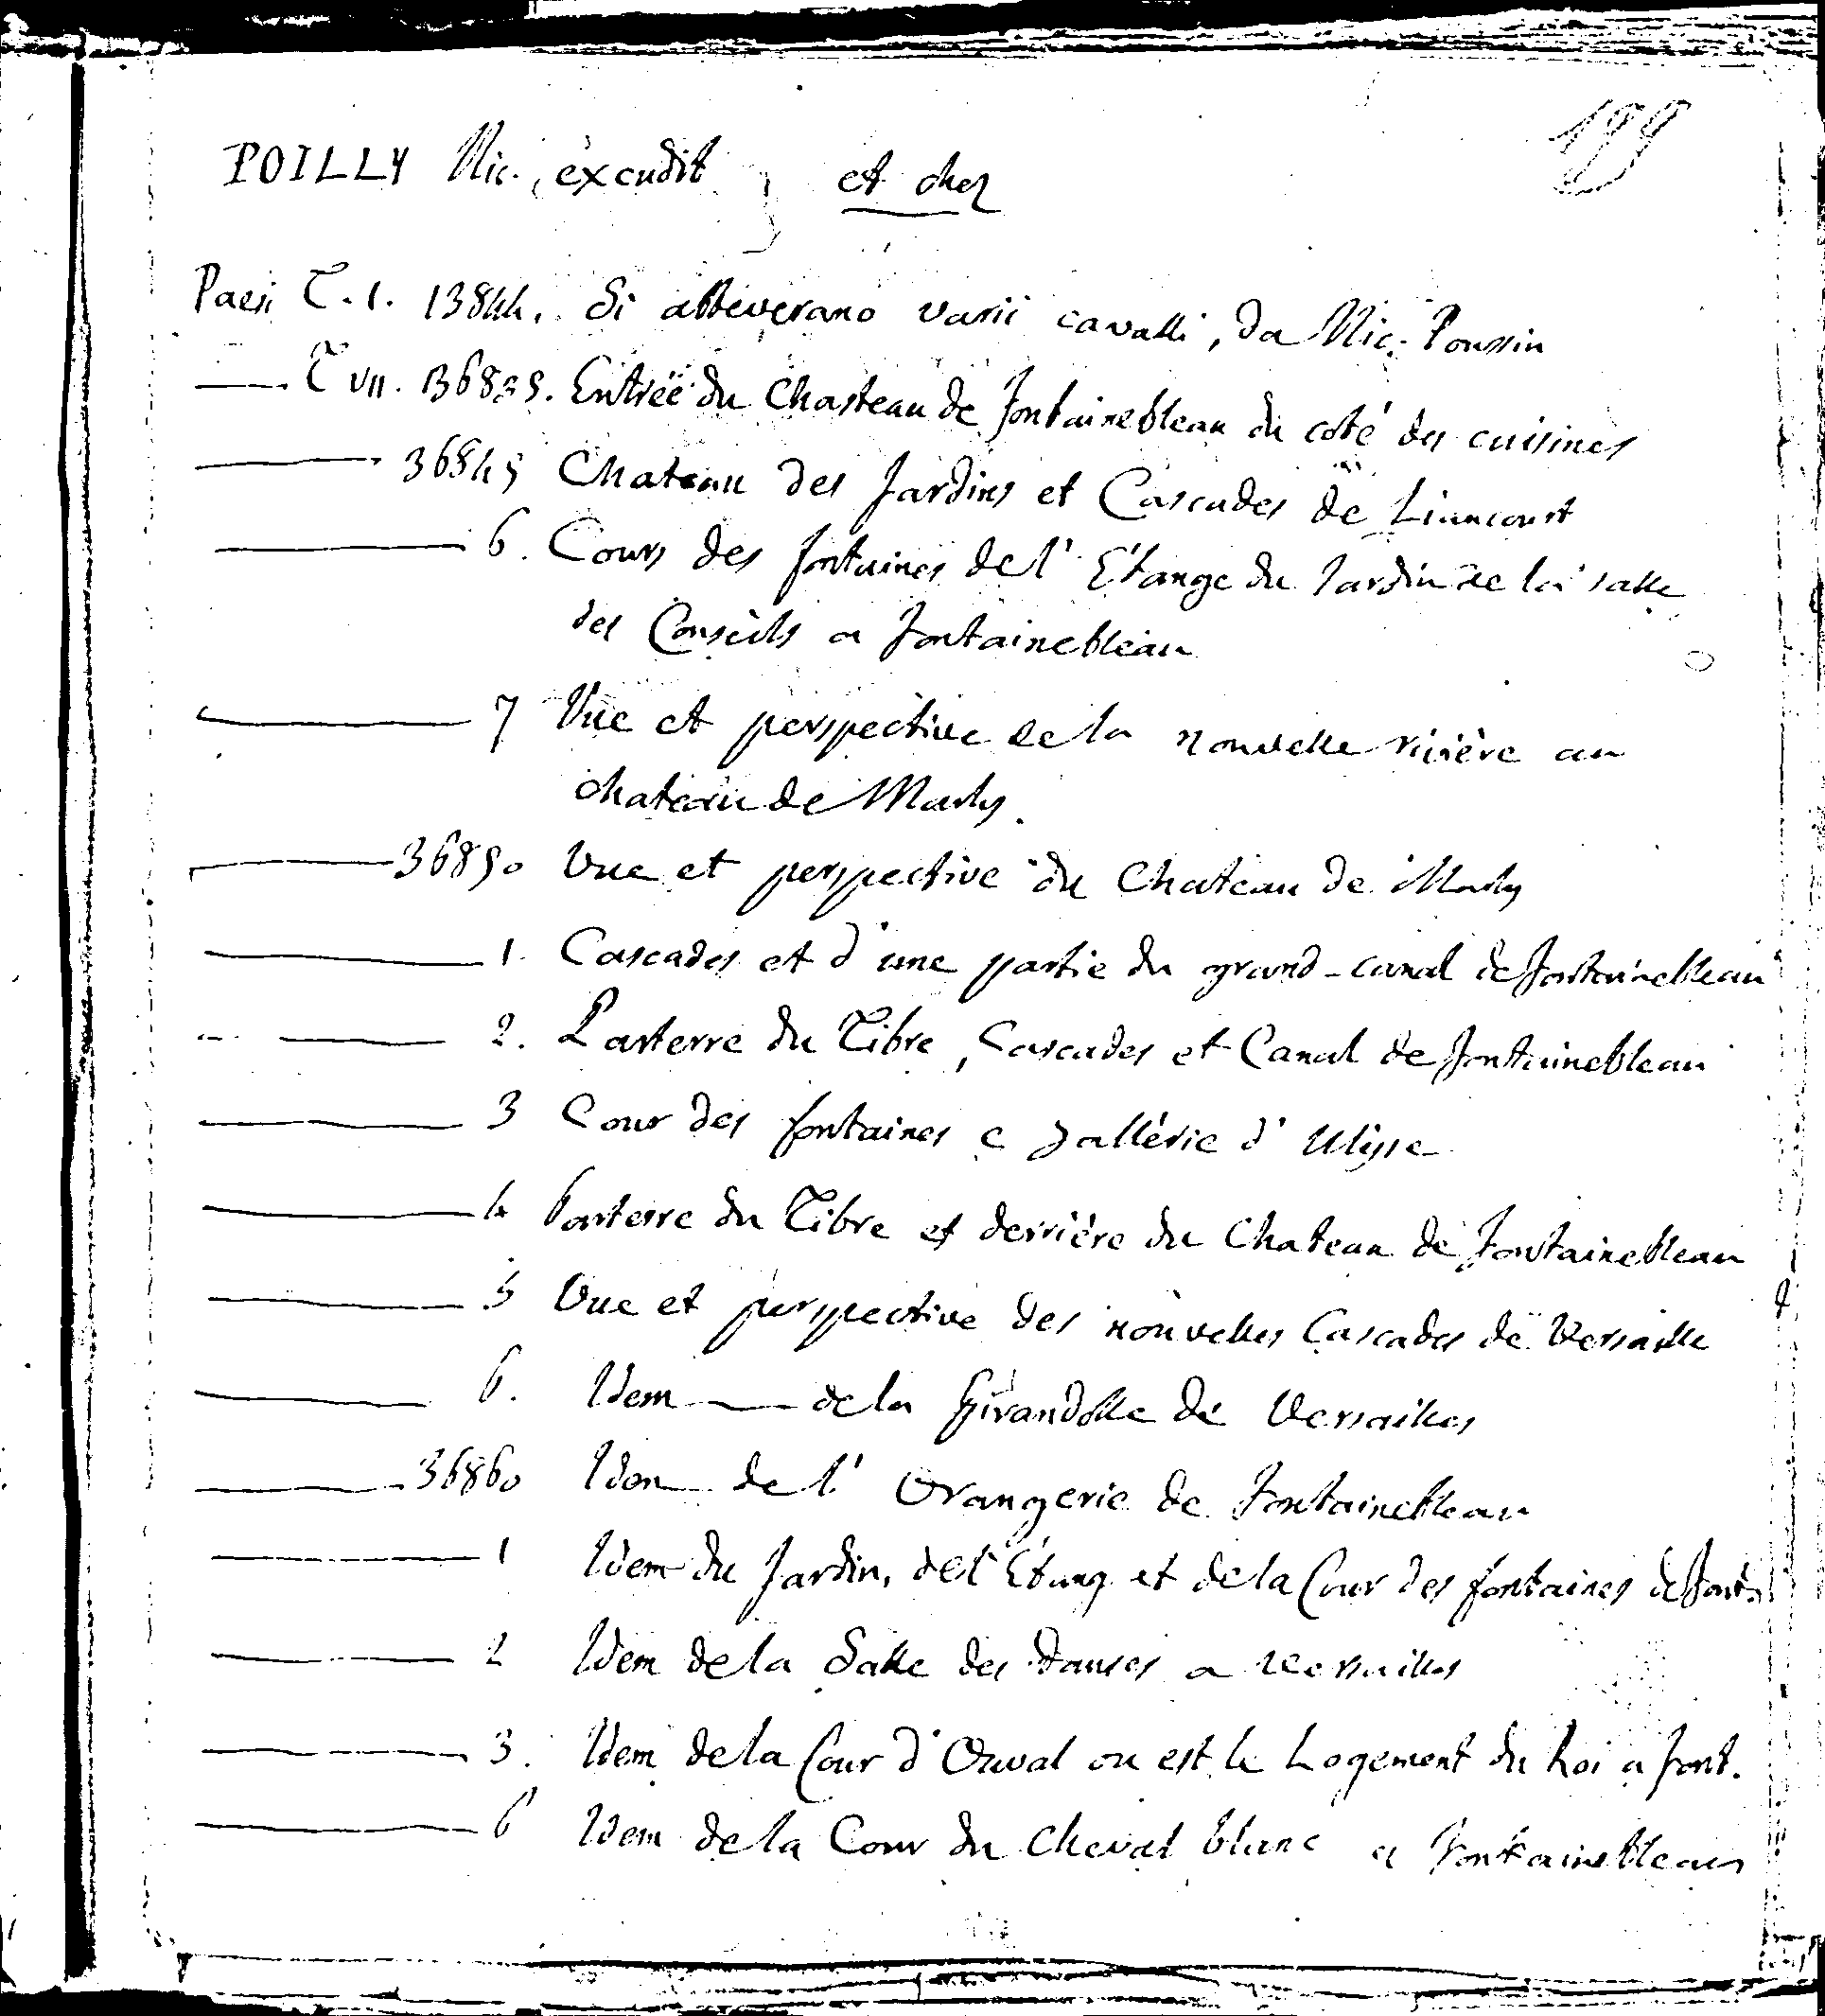 199
POILLY Nic. excudit et chez
Paesi T. I. 13844. Si abbeverano varii cavalli, da Nic. Poussin
T VII. 36839. Entrée du Chasteau de Fontainebleau du coté des cuisines
36845 Chateau des Jardins et Cascades de Liancourt
6. Cours des fontaines de l'Etange du Jardin de la salle
des Conseils a Fontainebleau
7 Vue et perspective de la nouvelle rivière au
chateau de Marly.
36850 Vue et perspective du Chateau de Marly
1. Cascades et d'une partie du grand-canal de Fontainebleau
2. Parterre du Tibre, Cascades et Canal de Fontainebleau
3 Cour des fontaines e gallérie d'Ulysse
4 Parterre du Tibre et derrière du Chateau de Fontainebleau
5 Vue et perspective des nouvelles Cascades de Versaille
6. Idem de la Girandolle de Versailles
36860 Idem de l'Orangerie de Fontainebleau
1 Idem du Jardin, de l'Etang et de la Cour des fontaines de Font.
2 Idem de la Salle des Danses a Versailles
3. Idem de la Cour d'Ouval ou est le Logement du Roi a Font.
6 Idem de la Cour du Cheval blanc a Fontainebleau